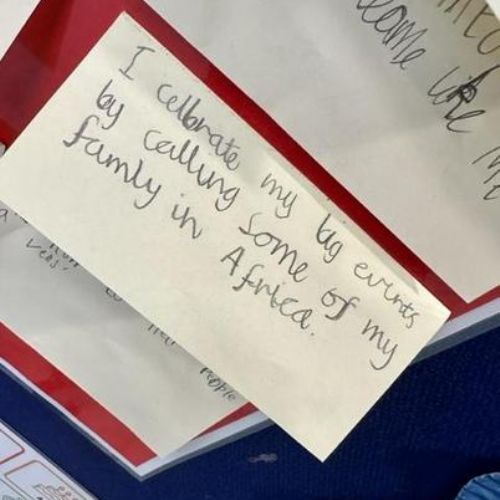 I celbrate my big events
by calling some of my
family in Africa.
come like
people